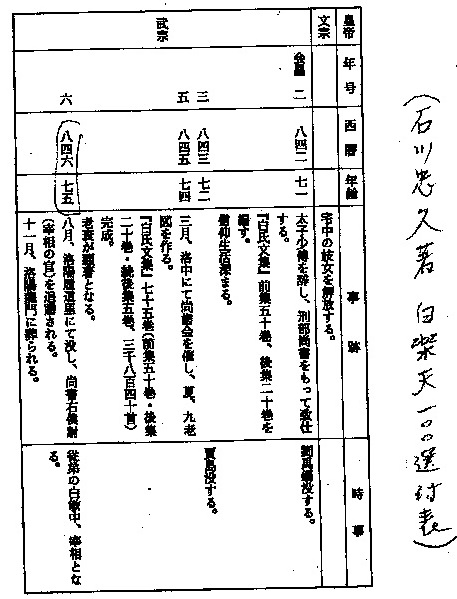 (石川忠久著 白楽天一〇〇選付表)
皇帝 年号 西暦 年齢 事跡 時事
文宗 宅中の妓女を解放する。
武宗 会昌 二 八四二 七一 太子少傅を辞し、刑部尚書をもって致仕
する。
劉禹錫没する。
『白氏文集』前集五十巻、後集二十巻を
編す。
信仰生活深まる。
三 八四三 七二 賈島没する。
五 八四五 七四 三月、洛中にて尚歯会を催し、夏、九老
図を作る。
『白氏文集』七十五巻(前集五十巻・後集
二十巻・続後集五巻、三千八百四十首)
完成。
老衰が顕著となる。
六 八四六 七五 八月、洛陽履道里にて没し、尚書右僕射
(宰相の官)を追贈される。
十一月、洛陽龍門に葬られる。
従弟の白敏中、宰相とな
る。